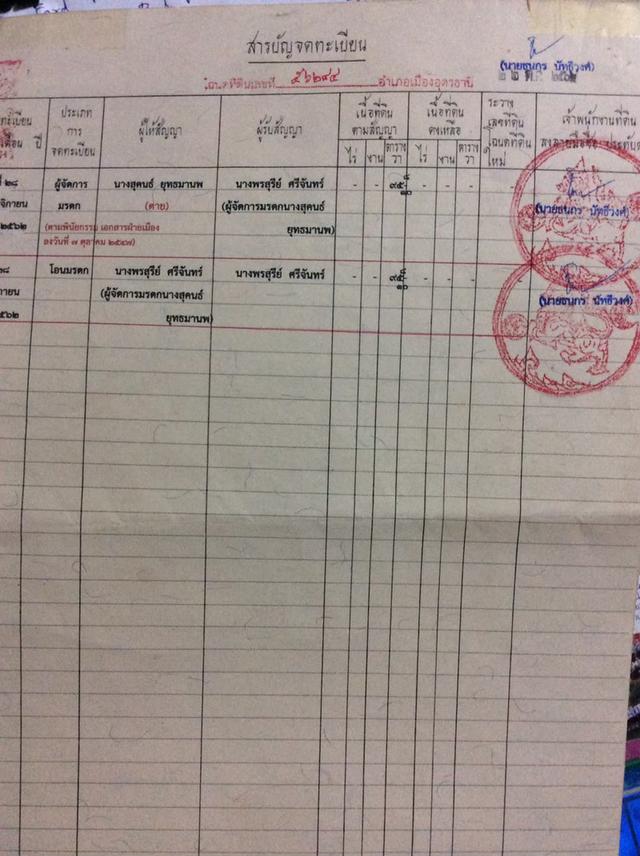 สารบัญจดทะเบียน
(นายธนกร นัทธีวงศ์)
โฉนดที่ดินเลขที่ ๕๖๒๙๔ อำเภอเมืองอุดรธานี
ทะเบียน
เดือน ปี
ประเภท
การ
จดทะเบียน
ผู้ให้สัญญา
ผู้รับสัญญา
เนื้อที่ดิน
ตามสัญญา
ไร่ งาน ตาราง
วา
เนื้อที่ดิน
คงเหลือ
ไร่ งาน ตาราง
วา
ระวาง
เลขที่ดิน
โฉนดที่ดิน
ใหม่
เจ้าพนักงานที่ดิน
ลงลายมือชื่อ ประทับตรา
ที่ ๒๘ ผู้จัดการ นางสุคนธ์ ยุทธมานพ นางพรสุรีย์ ศรีจันทร์ - - - - - -
จิกายน มรดก (ตาย) (ผู้จัดการมรดกนางสุคนธ์ (นายธนกร นัทธีวงศ์)
๒๕๖๒ (ตามพินัยกรรม เอกสารฝ่ายเมือง ยุทธมานพ)
ลงวันที่ ๗ ตุลาคม ๒๕๔๗)
๒๘ โอนมรดก นางพรสุรีย์ ศรีจันทร์ นางพรสุรีย์ ศรีจันทร์ - - - - - -
กายน (ผู้จัดการมรดกนางสุคนธ์ (นายธนกร นัทธีวงศ์)
๕๖๒ ยุทธมานพ)